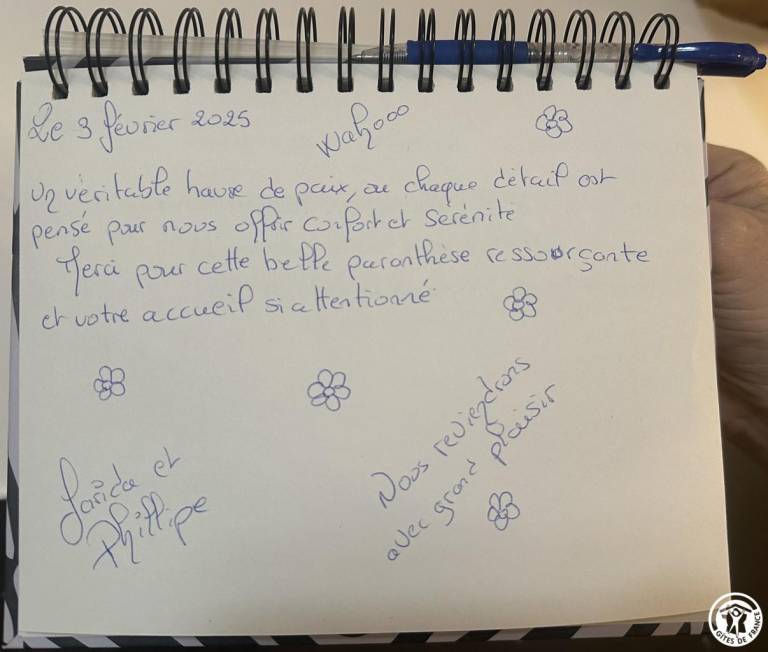 Le 3 février 2025
wahooo
Un véritable havre de paix, ou chaque détail est
pensé pour nous offrir confort et sérénité
Merci pour cette belle paranthèse ressourçante
et votre accueil si attentionné
Nous reviendrons
avec grand plaisir
Farida et
Phillipe
GÎTES DE FRANCE